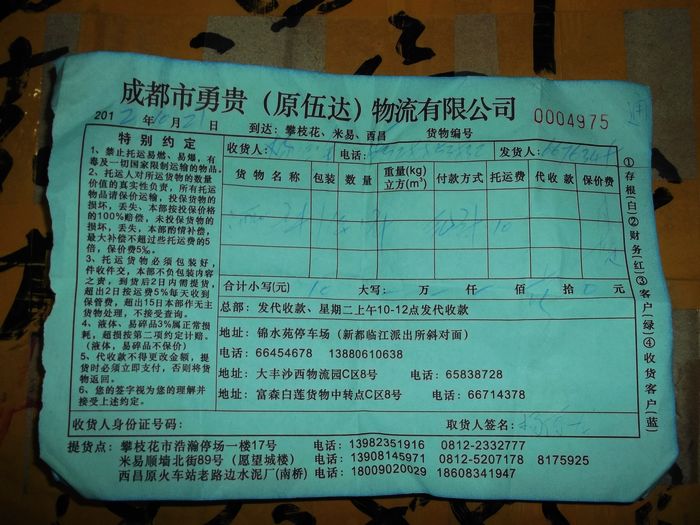 成都市勇贵（原伍达）物流有限公司
0004975
201 年 月 日 到达：攀枝花、米易、西昌 货物编号
特别约定
1、禁止托运易燃、易爆，有
毒及一切国家限制运输的物品。
2、托运人对所运货物的数量
价值的真实性负责，所有托运
物品请保价运输，投保货物的
损坏，丢失，本部按投保价格
的100%赔偿，未投保货物的
损坏、丢失，本部酌情补偿，
最大补偿不超过些托运费的5
倍，保价费5‰。
3、托运货物必须包装好，
件收件交，本部不负包装内容
之责，到货后2日内需提货，
超出2日按运费5%每天收到
保管费，超出15日本部作无主
货物处理，不接受查询。
4、液体、易碎品3%属正常损
耗，超损按第二项约定计赔。
（液体，易碎品不保价）
5、代收款不得更改金额，提
货时必须立即支付，否则将货
物返回。
6、您的签字视为您的理解并
接受上述约定。
收货人： 电话： 发货人：
货物名称 包装 数量 重量(kg) 立方(m³) 付款方式 托运费 代收款 保价费
合计小写(元) 大写： 万 仟 佰 拾 元
总部：发代收款、星期二上午10-12点发代收款
地址：锦水苑停车场（新都临江派出所斜对面）
电话：66454678 13880610638
地址：大丰沙西物流园C区8号 电话：65838728
地址：富森白莲货物中转点C区8号 电话：66714378
收货人身份证号码： 取货人签名：
提货点：攀枝花市浩瀚停场一楼17号 电话：13982351916 0812-2332777
米易顺墙北街89号（愿望城楼） 电话：13908145971 0812-5207178 8175925
西昌原火车站老路边水泥厂(南桥) 电话：18009020029 18608341947
①存根(白)②财务(红)③客户(绿)④收货客户(蓝)